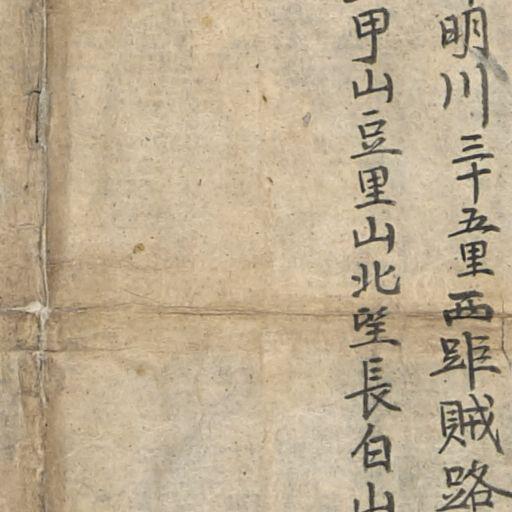 明川三十五里西距賊路
甲山豆里山北望長白山